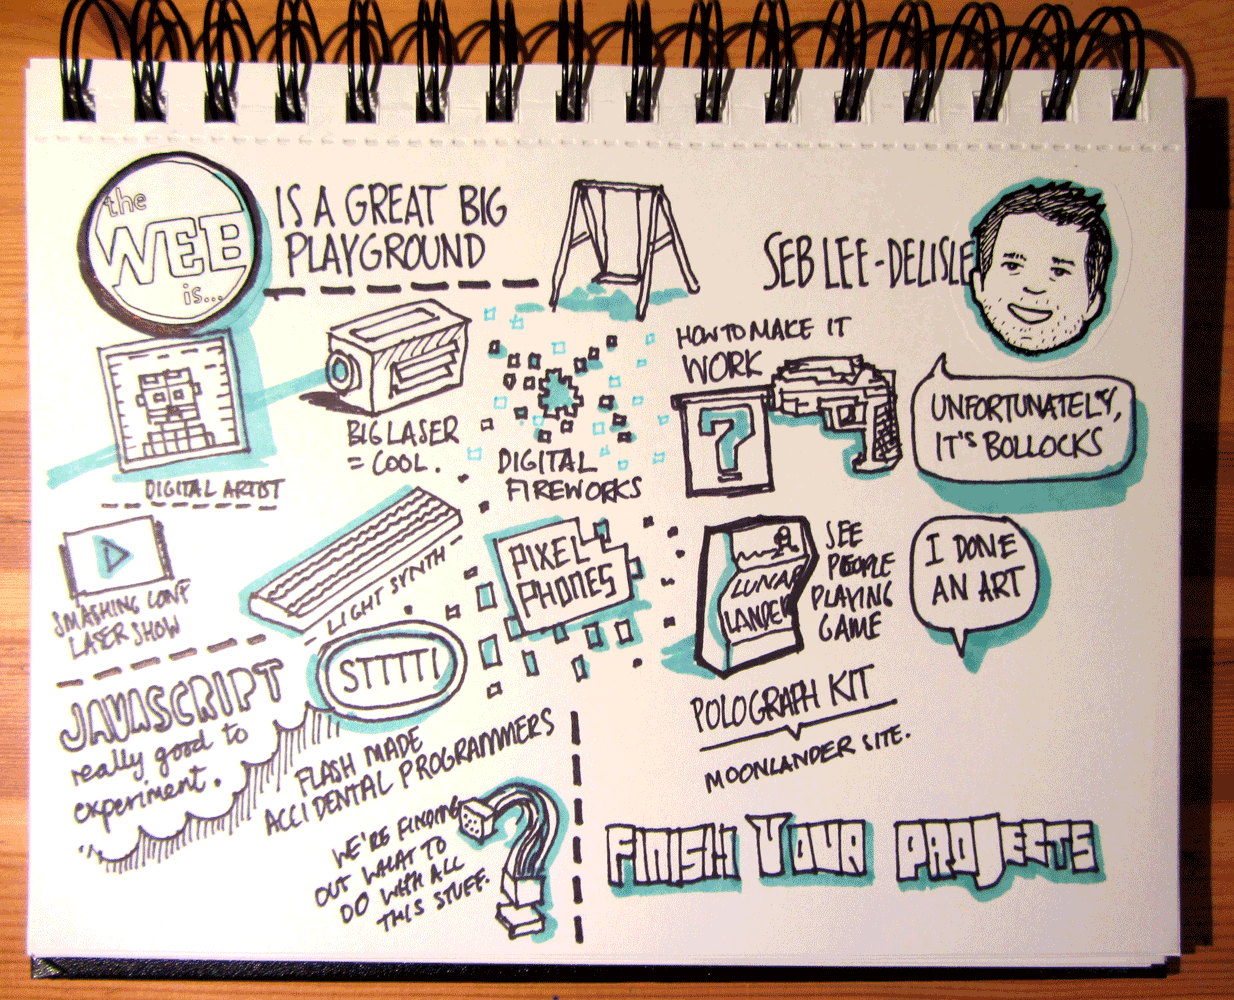 the
WEB
is...
IS A GREAT BIG
PLAYGROUND
SEB LEE-DELISLE
DIGITAL ARTIST
BIG LASER
= COOL.
DIGITAL
FIREWORKS
HOW TO MAKE IT
WORK
?
UNFORTUNATELY,
IT'S BOLLOCKS
SMASHING CONF
LASER SHOW
LIGHT SYNTH
PIXEL
PHONES
LUNAR
LANDER
SEE
PEOPLE
PLAYING
GAME
I DONE
AN ART
JAVASCRIPT
really good to
experiment.
STTTTI
FLASH MADE
ACCIDENTAL PROGRAMMERS
WE'RE FINDING
OUT WHAT TO
DO WITH ALL
THIS STUFF.
POLOGRAPH KIT
MOONLANDER SITE.
FINISH YOUR PROJECTS